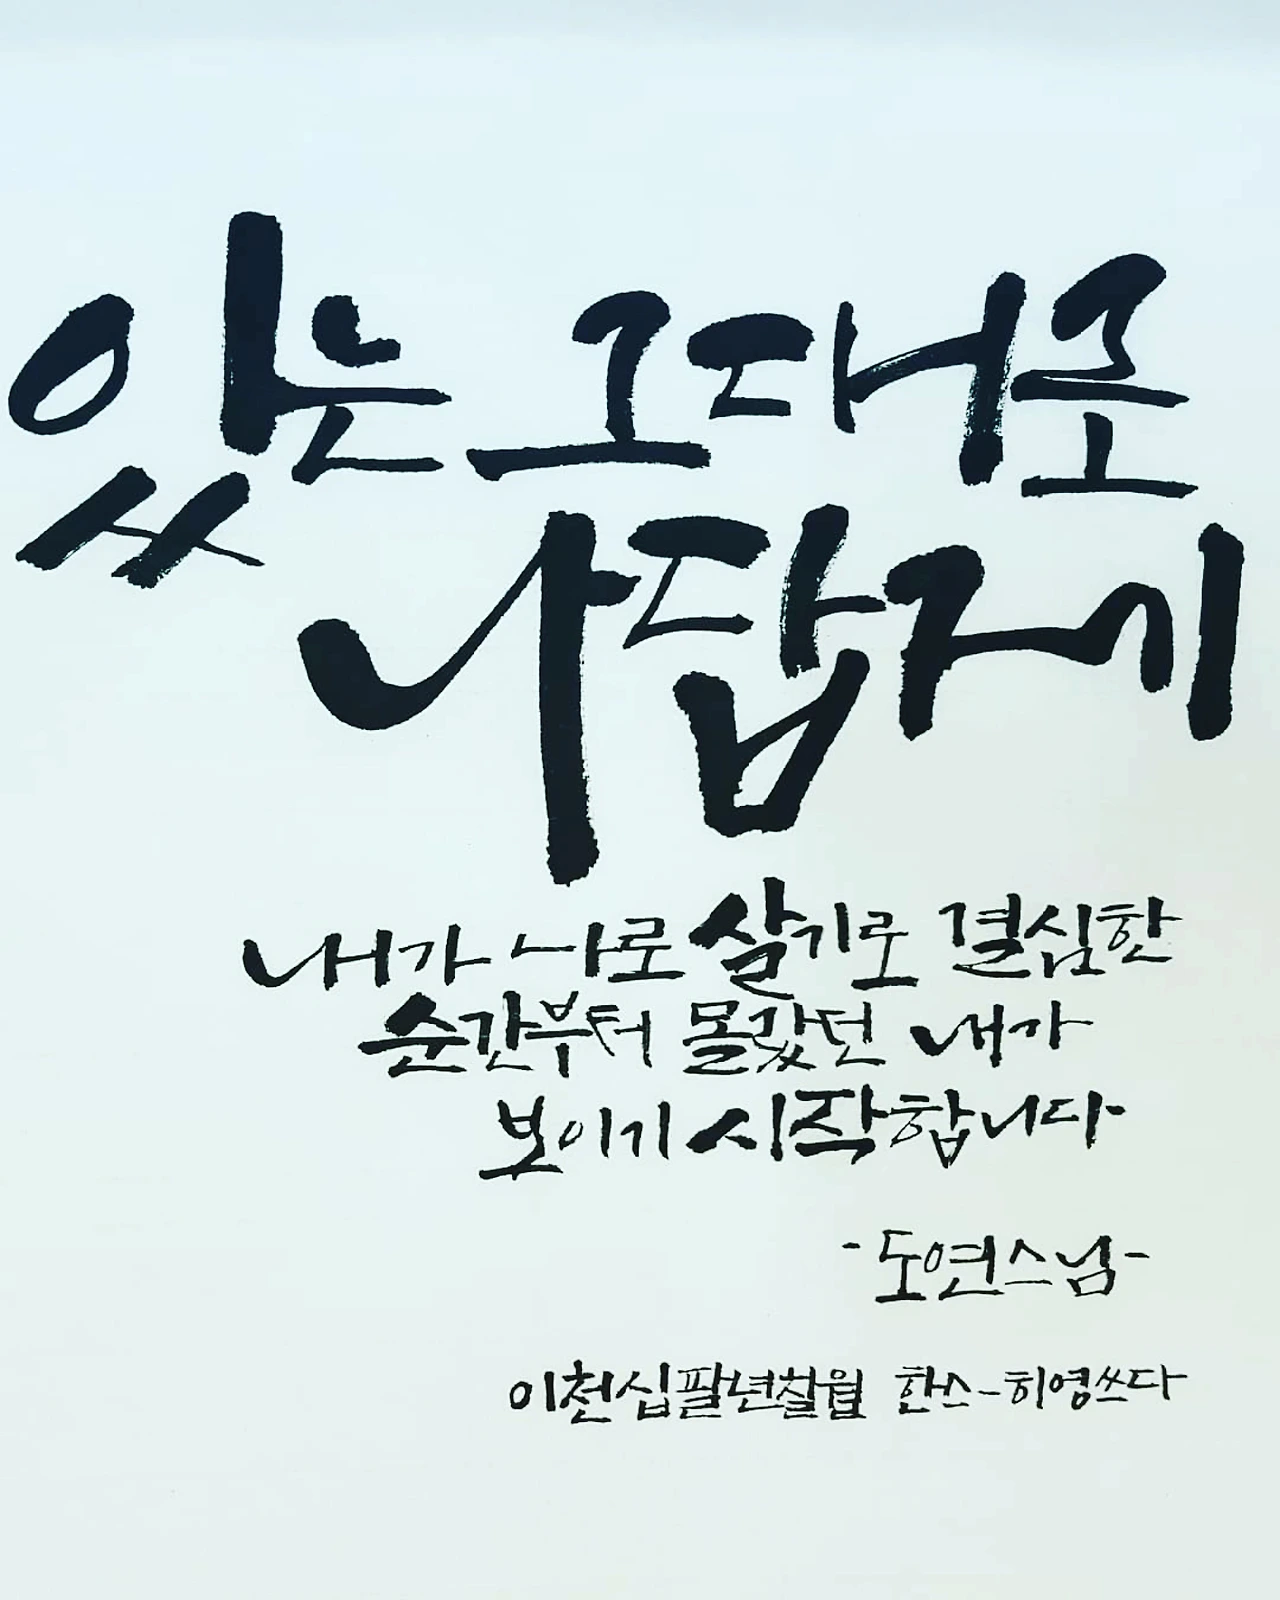 있는 그대로
나답게
내가 나로 살기로 결심한
순간부터 몰랐던 내가
보이기 시작합니다
-도연스님-
이천십팔년칠월 한스-히영쓰다